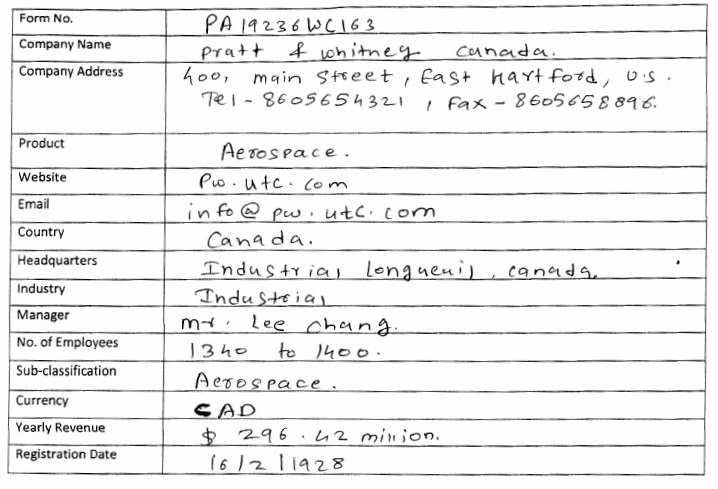 Form No. PA19236WC163
Company Name Pratt & whitney canada.
Company Address 400, main street, East hartford, U.S.
Tel - 8605654321, Fax - 8605658896.
Product Aerospace.
Website Pw.utc.com
Email info@pw.utc.com
Country Canada.
Headquarters Industrial longueuil, canada.
Industry Industrial
Manager mr. Lee chang.
No. of Employees 1340 to 1400.
Sub-classification Aerospace.
Currency CAD
Yearly Revenue $ 296.42 million.
Registration Date 16/2/1928